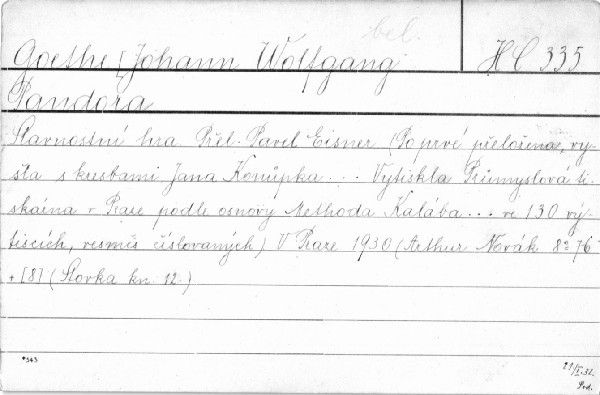 bel.
Goethe [Johann Wolfgang
HC 335
Pandora
Slavnostní hra. Přel. Pavel Eisner (Poprvé přeložena, vy-
šla s kresbami Jana Konůpka ... Vytiskla Průmyslová ti-
skárna v Praze podle osnovy Methoda Kalába ... ve 130 vý-
tiscích, vesměs číslovaných) V Praze 1930 (Arthur Novák 8° 76
+ [8] (Slovka kn. 12.)
*543
Prd.